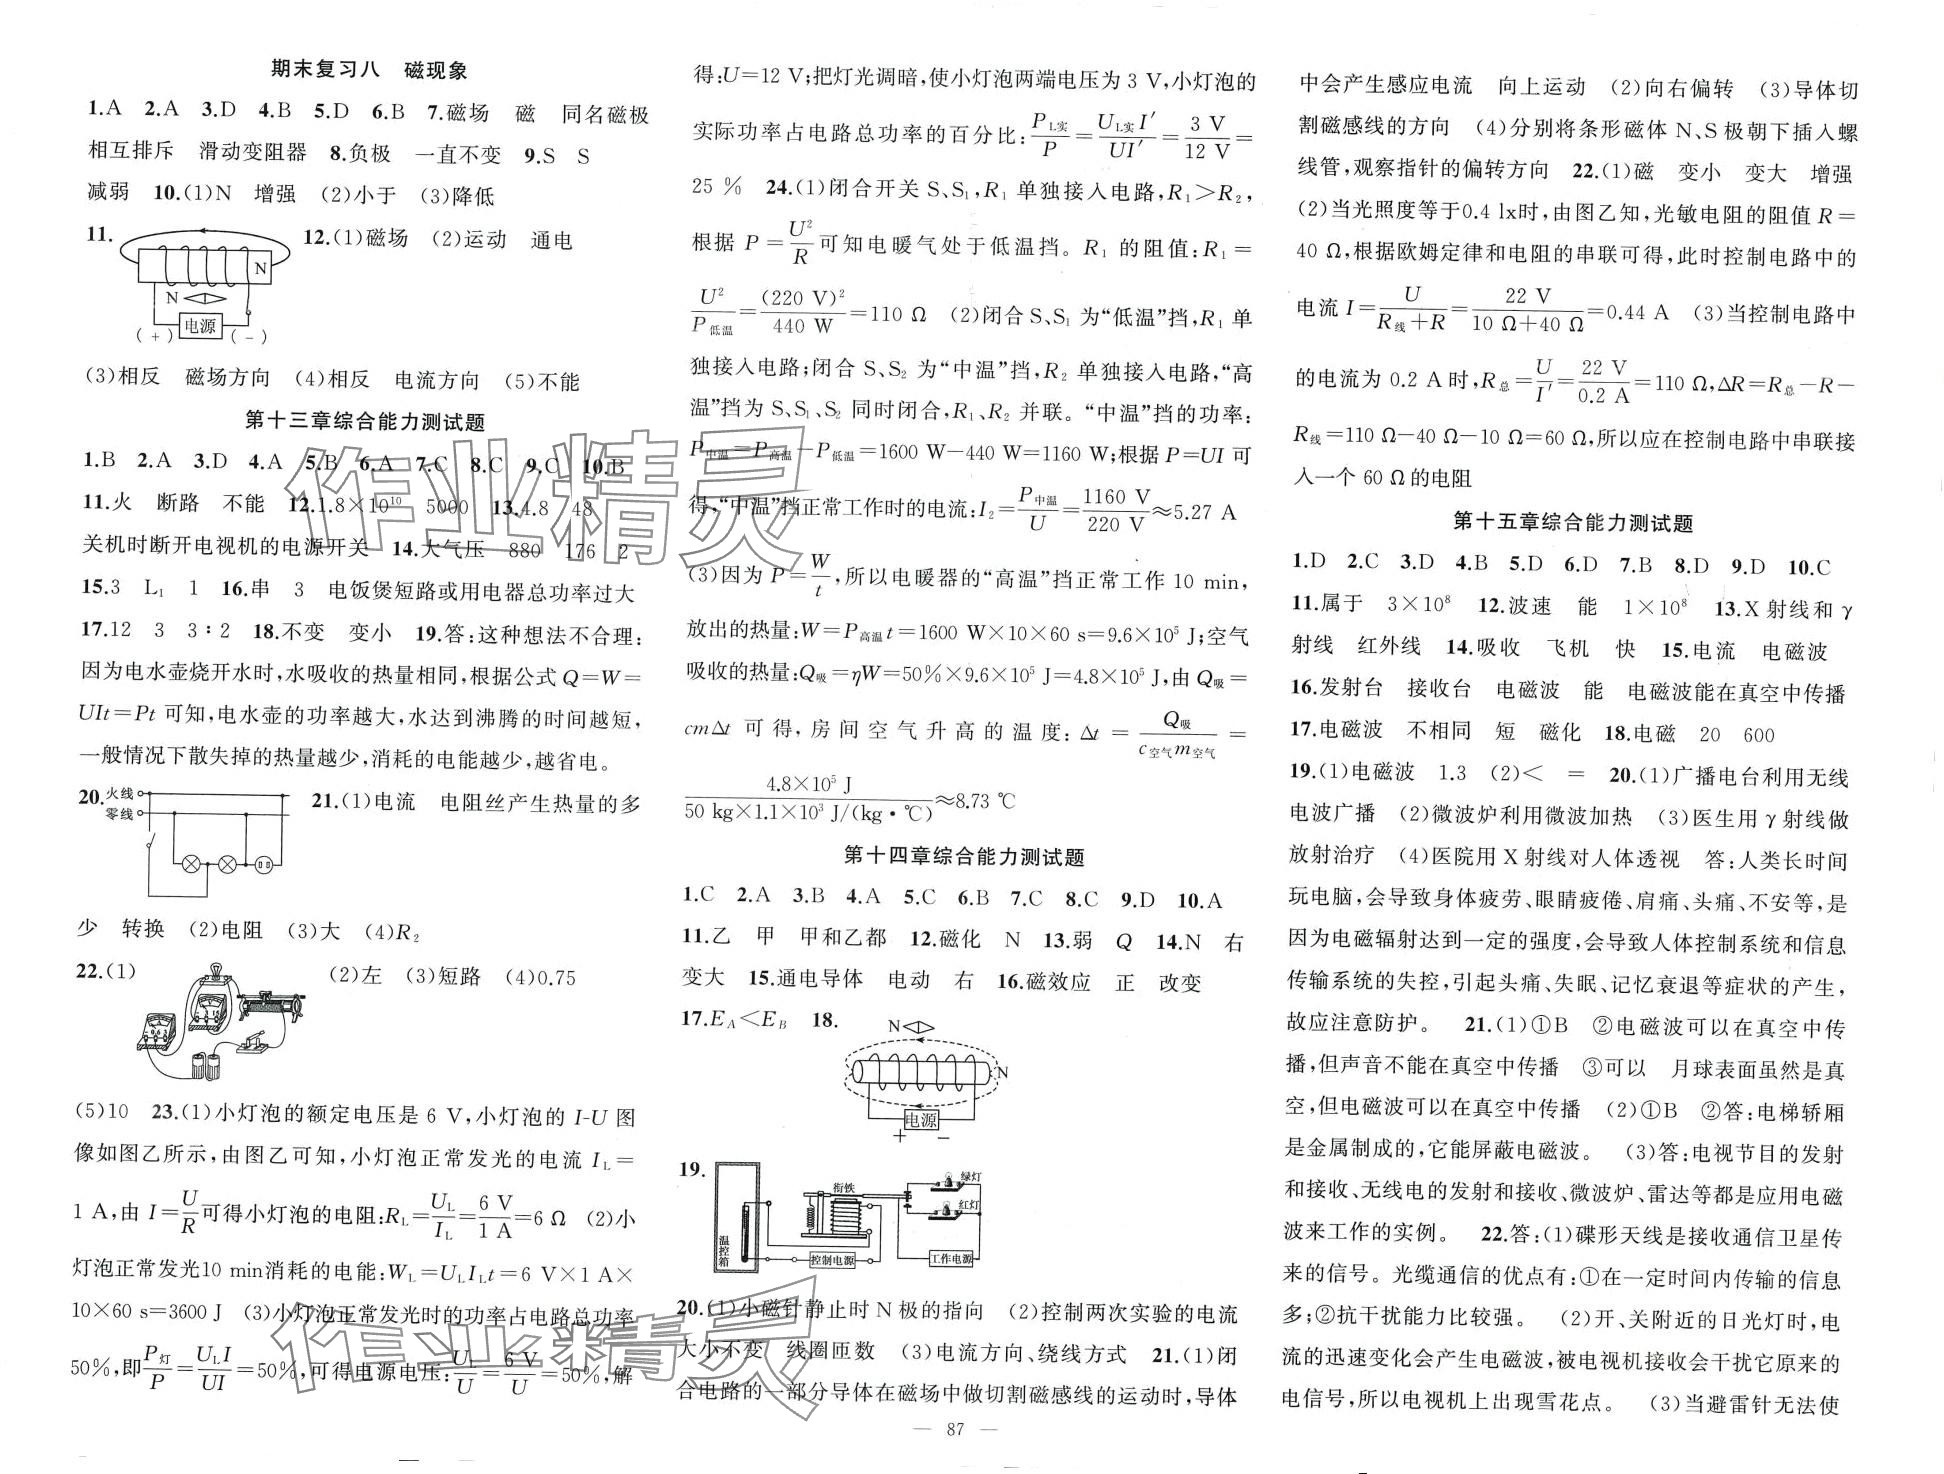 期末复习八　磁现象
1.A 2.A 3.D 4.B 5.D 6.B 7.磁场　磁　同名磁极
相互排斥　滑动变阻器 8.负极　一直不变 9.S S
减弱 10.(1)N 增强 (2)小于 (3)降低
11.
N
N
电源
(+) (-)
12.(1)磁场 (2)运动　通电
(3)相反　磁场方向 (4)相反　电流方向 (5)不能
第十三章综合能力测试题
1.B 2.A 3.D 4.A 5.B 6.A 7.C 8.C 9.C 10.B
11.火　断路　不能 12.1.8×10¹⁰ 5000 13.4.8 48
关机时断开电视机的电源开关 14.大气压 880 176 2
15.3 L₁ 1 16.串 3 电饭煲短路或用电器总功率过大
17.12 3 3∶2 18.不变　变小 19.答:这种想法不合理:
因为电水壶烧开水时,水吸收的热量相同,根据公式Q=W=
UIt=Pt可知,电水壶的功率越大,水达到沸腾的时间越短,
一般情况下散失掉的热量越少,消耗的电能越少,越省电。
20.火线
零线
21.(1)电流　电阻丝产生热量的多
少　转换 (2)电阻 (3)大 (4)R₂
22.(1) (2)左 (3)短路 (4)0.75
(5)10 23.(1)小灯泡的额定电压是6 V,小灯泡的I-U图
像如图乙所示,由图乙可知,小灯泡正常发光的电流I_L=
1 A,由I=U/R可得小灯泡的电阻:R_L=U_L/I_L=6 V/1 A=6 Ω (2)小
灯泡正常发光10 min消耗的电能:W_L=U_L I_L t=6 V×1 A×
10×60 s=3600 J (3)小灯泡正常发光时的功率占电路总功率
50%,即P灯/P=U_L I/UI=50%,可得电源电压:U_L/U=6 V/U=50%,解
得:U=12 V;把灯光调暗,使小灯泡两端电压为3 V,小灯泡的
实际功率占电路总功率的百分比:P_L实/P=U_L实I′/UI′=3 V/12 V=
25 % 24.(1)闭合开关S、S₁,R₁单独接入电路,R₁>R₂,
根据P=U²/R可知电暖气处于低温挡。R₁的阻值:R₁=
U²/P低温=(220 V)²/440 W=110 Ω (2)闭合S、S₁为“低温”挡,R₁单
独接入电路;闭合S、S₂为“中温”挡,R₂单独接入电路,“高
温”挡为S、S₁、S₂同时闭合,R₁、R₂并联。“中温”挡的功率:
P中温=P高温-P低温=1600 W-440 W=1160 W;根据P=UI可
得,“中温”挡正常工作时的电流:I₂=P中温/U=1160 V/220 V≈5.27 A
(3)因为P=W/t,所以电暖器的“高温”挡正常工作10 min,
放出的热量:W=P高温t=1600 W×10×60 s=9.6×10⁵ J;空气
吸收的热量:Q吸=ηW=50%×9.6×10⁵ J=4.8×10⁵ J,由Q吸=
cmΔt可得,房间空气升高的温度:Δt=Q吸/c空气m空气=
4.8×10⁵ J/50 kg×1.1×10³ J/(kg·℃)≈8.73 ℃
第十四章综合能力测试题
1.C 2.A 3.B 4.A 5.C 6.B 7.C 8.C 9.D 10.A
11.乙　甲　甲和乙都 12.磁化 N 13.弱 Q 14.N 右
变大 15.通电导体　电动　右 16.磁效应　正　改变
17.E_A<E_B 18.
N
N
电源
+ -
19.
温控箱
衔铁
绿灯
红灯
控制电源
工作电源
20.(1)小磁针静止时N极的指向 (2)控制两次实验的电流
大小不变　线圈匝数 (3)电流方向、绕线方式 21.(1)闭
合电路的一部分导体在磁场中做切割磁感线的运动时,导体
中会产生感应电流　向上运动 (2)向右偏转 (3)导体切
割磁感线的方向 (4)分别将条形磁体N、S极朝下插入螺
线管,观察指针的偏转方向 22.(1)磁　变小　变大　增强
(2)当光照度等于0.4 lx时,由图乙知,光敏电阻的阻值R=
40 Ω,根据欧姆定律和电阻的串联可得,此时控制电路中的
电流I=U/R线+R=22 V/10 Ω+40 Ω=0.44 A (3)当控制电路中
的电流为0.2 A时,R总=U/I′=22 V/0.2 A=110 Ω,ΔR=R总-R-
R线=110 Ω-40 Ω-10 Ω=60 Ω,所以应在控制电路中串联接
入一个60 Ω的电阻
第十五章综合能力测试题
1.D 2.C 3.D 4.B 5.D 6.D 7.B 8.D 9.D 10.C
11.属于 3×10⁸ 12.波速　能 1×10⁸ 13.X射线和γ
射线　红外线 14.吸收　飞机　快 15.电流　电磁波
16.发射台　接收台　电磁波　能　电磁波能在真空中传播
17.电磁波　不相同　短　磁化 18.电磁 20 600
19.(1)电磁波 1.3 (2)< = 20.(1)广播电台利用无线
电波广播 (2)微波炉利用微波加热 (3)医生用γ射线做
放射治疗 (4)医院用X射线对人体透视　答:人类长时间
玩电脑,会导致身体疲劳、眼睛疲倦、肩痛、头痛、不安等,是
因为电磁辐射达到一定的强度,会导致人体控制系统和信息
传输系统的失控,引起头痛、失眠、记忆衰退等症状的产生,
故应注意防护。 21.(1)①B ②电磁波可以在真空中传
播,但声音不能在真空中传播 ③可以　月球表面虽然是真
空,但电磁波可以在真空中传播 (2)①B ②答:电梯轿厢
是金属制成的,它能屏蔽电磁波。 (3)答:电视节目的发射
和接收、无线电的发射和接收、微波炉、雷达等都是应用电磁
波来工作的实例。 22.答:(1)碟形天线是接收通信卫星传
来的信号。光缆通信的优点有:①在一定时间内传输的信息
多;②抗干扰能力比较强。 (2)开、关附近的日光灯时,电
流的迅速变化会产生电磁波,被电视机接收会干扰它原来的
电信号,所以电视机上出现雪花点。 (3)当避雷针无法使
— 87 —
作业精灵
作业精灵